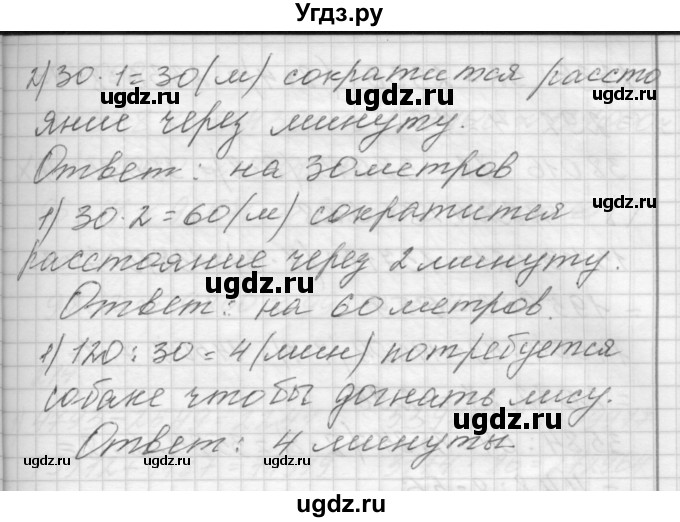 Угдз.ру
2) 30 · 1 = 30 (м) сократится рассто
ugdz.ru ugdz.ru ugdz.ru
яние через минуту.
Ответ: на 30 метров
ugdz.ru ugdz.ru ugdz.ru
1) 30 · 2 = 60 (м) сократится
расстояние через 2 минуту.
ugdz.ru
Ответ: на 60 метров.
ugdz.ru ugdz.ru
1) 120 : 30 = 4 (мин) потребуется
собаке чтобы догнать лису.
ugdz.ru
Ответ: 4 минуты.
ugdz.ru ugdz.ru ugdz.ru ugdz.ru
ugdz.ru